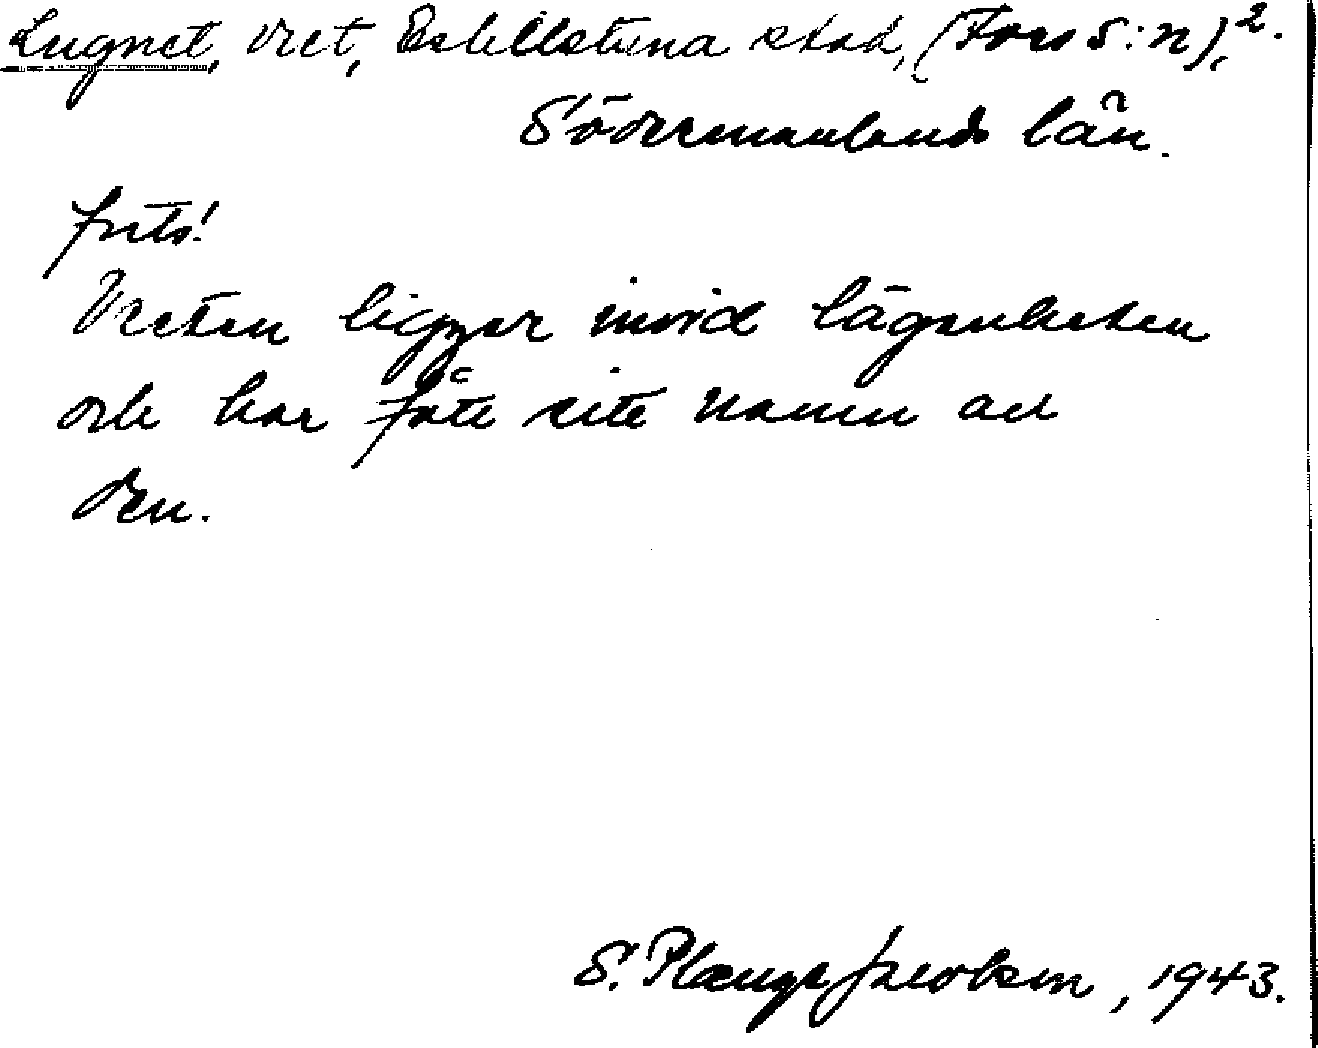 Lugnet, vret, Eskilstuna stad, (Fors S:n), 2.
Södermanlands län.
forts!
Vreten ligger invid lägenheten
och har fått sitt namn av
den.
S. Plænge Jacobson, 1943.